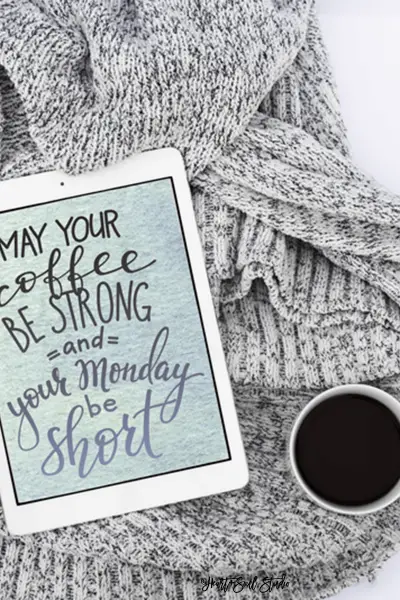 MAY YOUR
coffee
BE STRONG
=and=
your Monday
be
short
Heart & Soul Studio